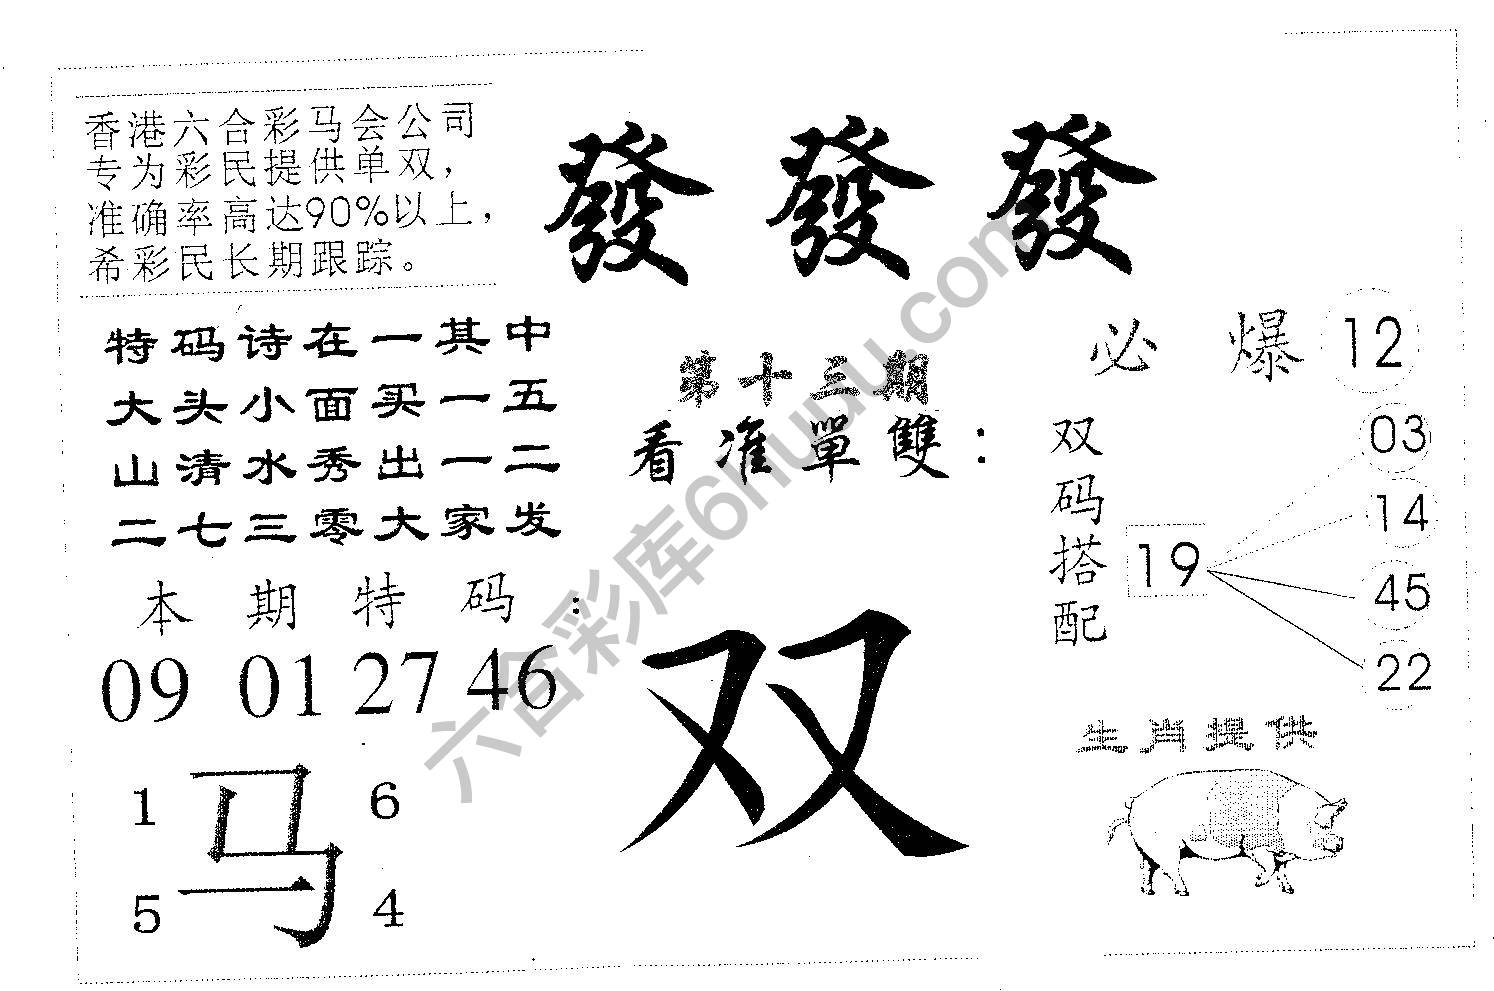 香港六合彩马会公司
专为彩民提供单双，
准确率高达90%以上，
希彩民长期跟踪。
發發發
特码诗在一其中
大头小面买一五
山清水秀出一二
二七三零大家发
第十三期
看准單雙：
必爆 12
双码搭配
19
03
14
45
22
本期特码：
09 01 27 46
双
马
1 6
5 4
生肖提供
六合彩库6huuu.com